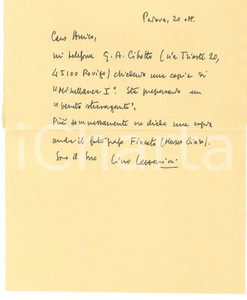 Padova, 20 ott.
Caro Amico,
mi telefona G. A. Cibotto (via Trieste 20,
45100 Rovigo) chiedendo una copia di
"Miscellanea I". Sta preparando un
"Veneto stravagante".
Più sommessamente ne chiede una copia
anche il fotografo
(Museo
Sono il Suo Lino Lazzarini
iCharta